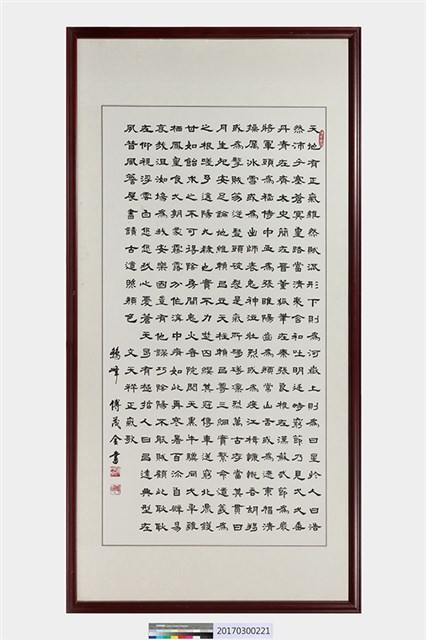 天地有正氣雜然賦流形下則為河嶽上則為日星於人曰浩
然沛乎塞蒼冥皇路當清夷含和吐明庭時窮節乃見弌弌垂
丹青在齊太史簡在晉董狐筆在秦張良椎在漢蘇武節為嚴
將軍頭為嵇侍中血為張睢陽齒為顏常山舌或為遼東帽清
操厲冰雪或為出師表鬼神泣壯烈或為渡江楫慷慨吞胡羯
或為擊賊笏逆豎頭破裂是氣所磅礡凜烈萬古存當其貫日
月生死安足論地維賴以立天柱賴以尊三綱實繫命道義為
之根嗟予遘陽九隸也實不力楚囚纓其冠傳車送窮北鼎鑊
甘如飴求之不可得陰房闃鬼火春院閟天黑牛驥同弌皁雞
棲鳳皇食弌朝蒙霧露分作溝中瘠如此再寒暑百沴自辟易
哀哉沮洳場為我安樂國豈有他謬巧陰陽不能賊顧此耿耿
在仰視浮雲白悠悠我心憂蒼天曷有極哲人日已遠典型在
夙昔風簷展書讀古道照顏色 文天祥正氣歌
峰 傅茂全書
20170300221